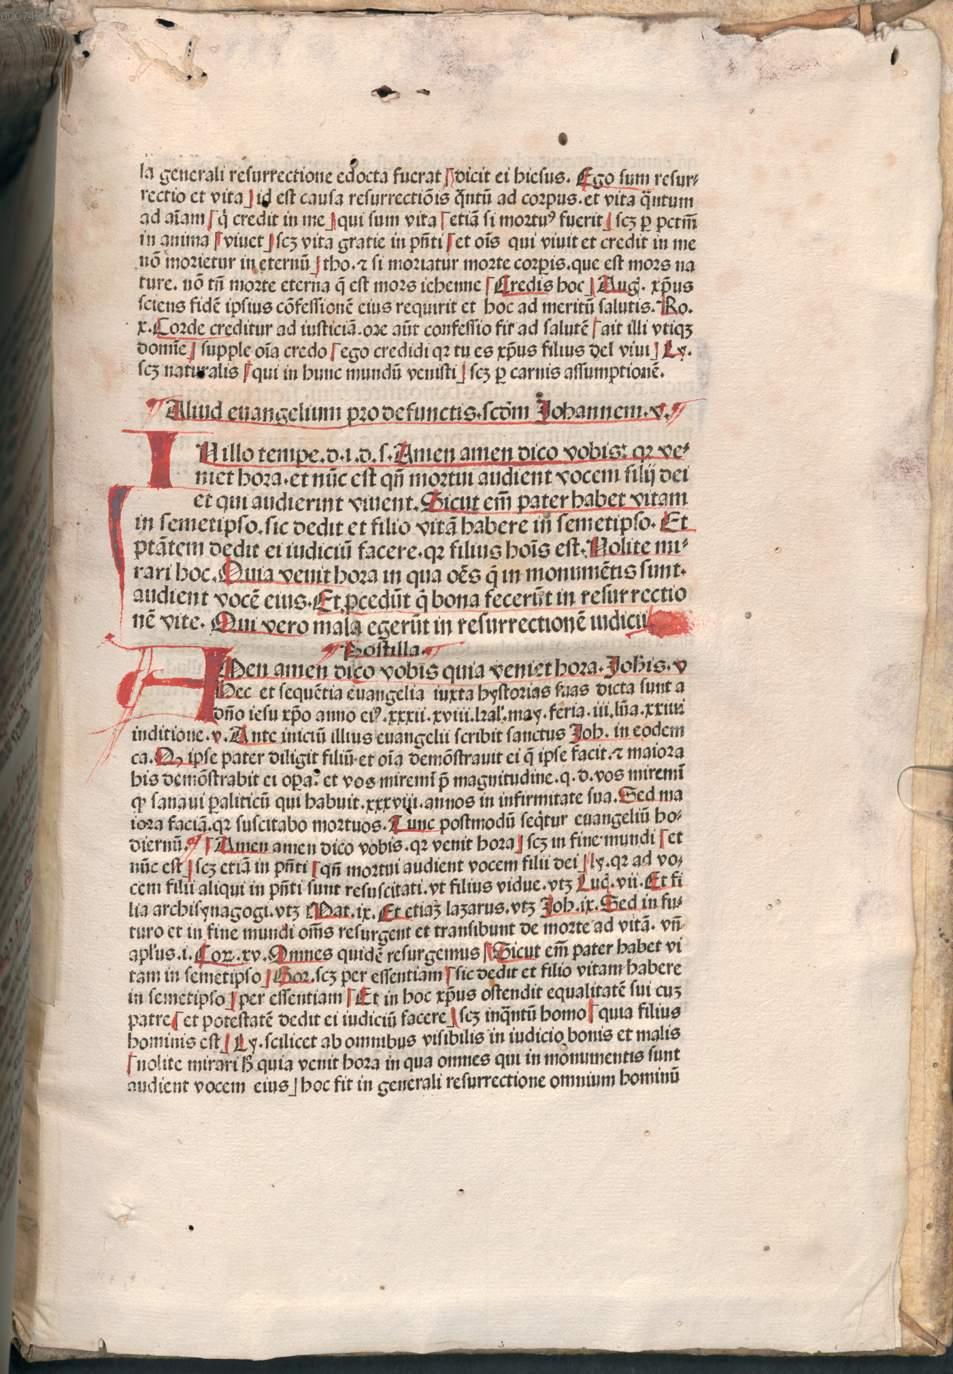 la generali resurrectione edocta fuerat dicit ei hiesus. Ego sum resur⸗
rectio et vita] id est causa resurrectiõis q̃ntũ ad corpus. et vita q̃ntum
ad aĩam [q̃ credit in me] qui sum vita [etiã si mortuꝰ fuerit] scꝫ ꝑ pctm̃
in anima [viuet] scꝫ vita gratie in pñti [et oĩs qui viuit et credit in me
nõ morietur in eternũ] tho. ⁊ si moriatur morte corpis. que est mors na
ture. nõ tñ morte eterna q̃ est mors iehenne [Credis hoc] Aug. xp̃us
sciens fidẽ ipsius cõfessionẽ eius requirit et hoc ad meritũ salutis. Ro.
x. Corde creditur ad iusticiã. ore aũt confessio fit ad salutẽ [ait illi vtiqꝫ
domĩe] supple oĩa credo [ego credidi qꝛ tu es xp̃us filius dei viui] Ly.
scꝫ naturalis [qui in hunc mundũ venisti] scꝫ ꝑ carnis assumptionẽ.
Aliud euangelium pro defunctis. scd̃m Johannem. v.
IN illo tempe. d. i. d. s. Amen amen dico vobis: qꝛ ve⸗
niet hora. et nũc est qñ mortui audient vocem filij dei
et qui audierint viuent. Sicut em̃ pater habet vitam
in semetipso. sic dedit et filio vitã habere in semetipso. Et
ptãtem dedit ei iudiciũ facere. qꝛ filius hoĩs est. Nolite mi⸗
rari hoc. Quia venit hora in qua oẽs q̃ in monumẽtis sunt.
audient vocẽ eius. Et ꝓcedũt q̃ bona fecerũt in resurrectio
nẽ vite. Qui vero mala egerũt in resurrectionẽ iudicij
Postilla.
AMen amen dico vobis quia veniet hora. Joh̃is. v
Hec et sequẽtia euangelia iuxta hystorias suas dicta sunt a
dño iesu xp̃o anno eiꝰ. xxxii. xviii. kal'. may. feria. iii. lũa. xxiiii
inditione. v. Ante iniciũ illius euangelii scribit sanctus Joh. in eodem
ca. Qꝛ ipse pater diligit filiũ. et oĩa demõstrauit ei q̃ ipse facit. ⁊ maiora
his demõstrabit ei opa. et vos miremĩ p̃ magnitudine. q. d. vos miremĩ
ꝙ sanaui paliticũ qui habuit. xxxviii. annos in infirmitate sua. Sed ma
iora faciã. qꝛ suscitabo mortuos. Tunc postmodũ seq̃tur euangeliũ ho⸗
diernũ. [Amen amen dico vobis. qꝛ venit hora] scꝫ in fine mundi [et
nũc est] scꝫ etiã in pñti [qñ mortui audient vocem filii dei] ly. qꝛ ad vo⸗
cem filii aliqui in pñti sunt resuscitati. vt filius vidue. vtꝫ Luc̃. vii. Et fi
lia archisynagogi. vtꝫ Mat. ix. Et etiaꝫ lazarus. vtꝫ Joh. ix. Sed in fu⸗
turo et in fine mundi om̃s resurgent et transibunt de morte ad vitã. vñ
apl'us. i. Cor. xv. Omnes quidẽ resurgemus [Sicut em̃ pater habet vi
tam in semetipso] Gor. scꝫ per essentiam [sic dedit et filio vitam habere
in semetipso] per essentiam [Et in hoc xp̃us ostendit equalitatẽ sui cuꝫ
patre [et potestatẽ dedit ei iudiciũ facere] scꝫ inq̃ntũ homo [quia filius
hominis est] Ly. scilicet ab omnibus visibilis in iudicio bonis et malis
[nolite mirari h̃. quia venit hora in qua omnes qui in monumentis sunt
audient vocem eius] hoc fit in generali resurrectione omnium hominũ